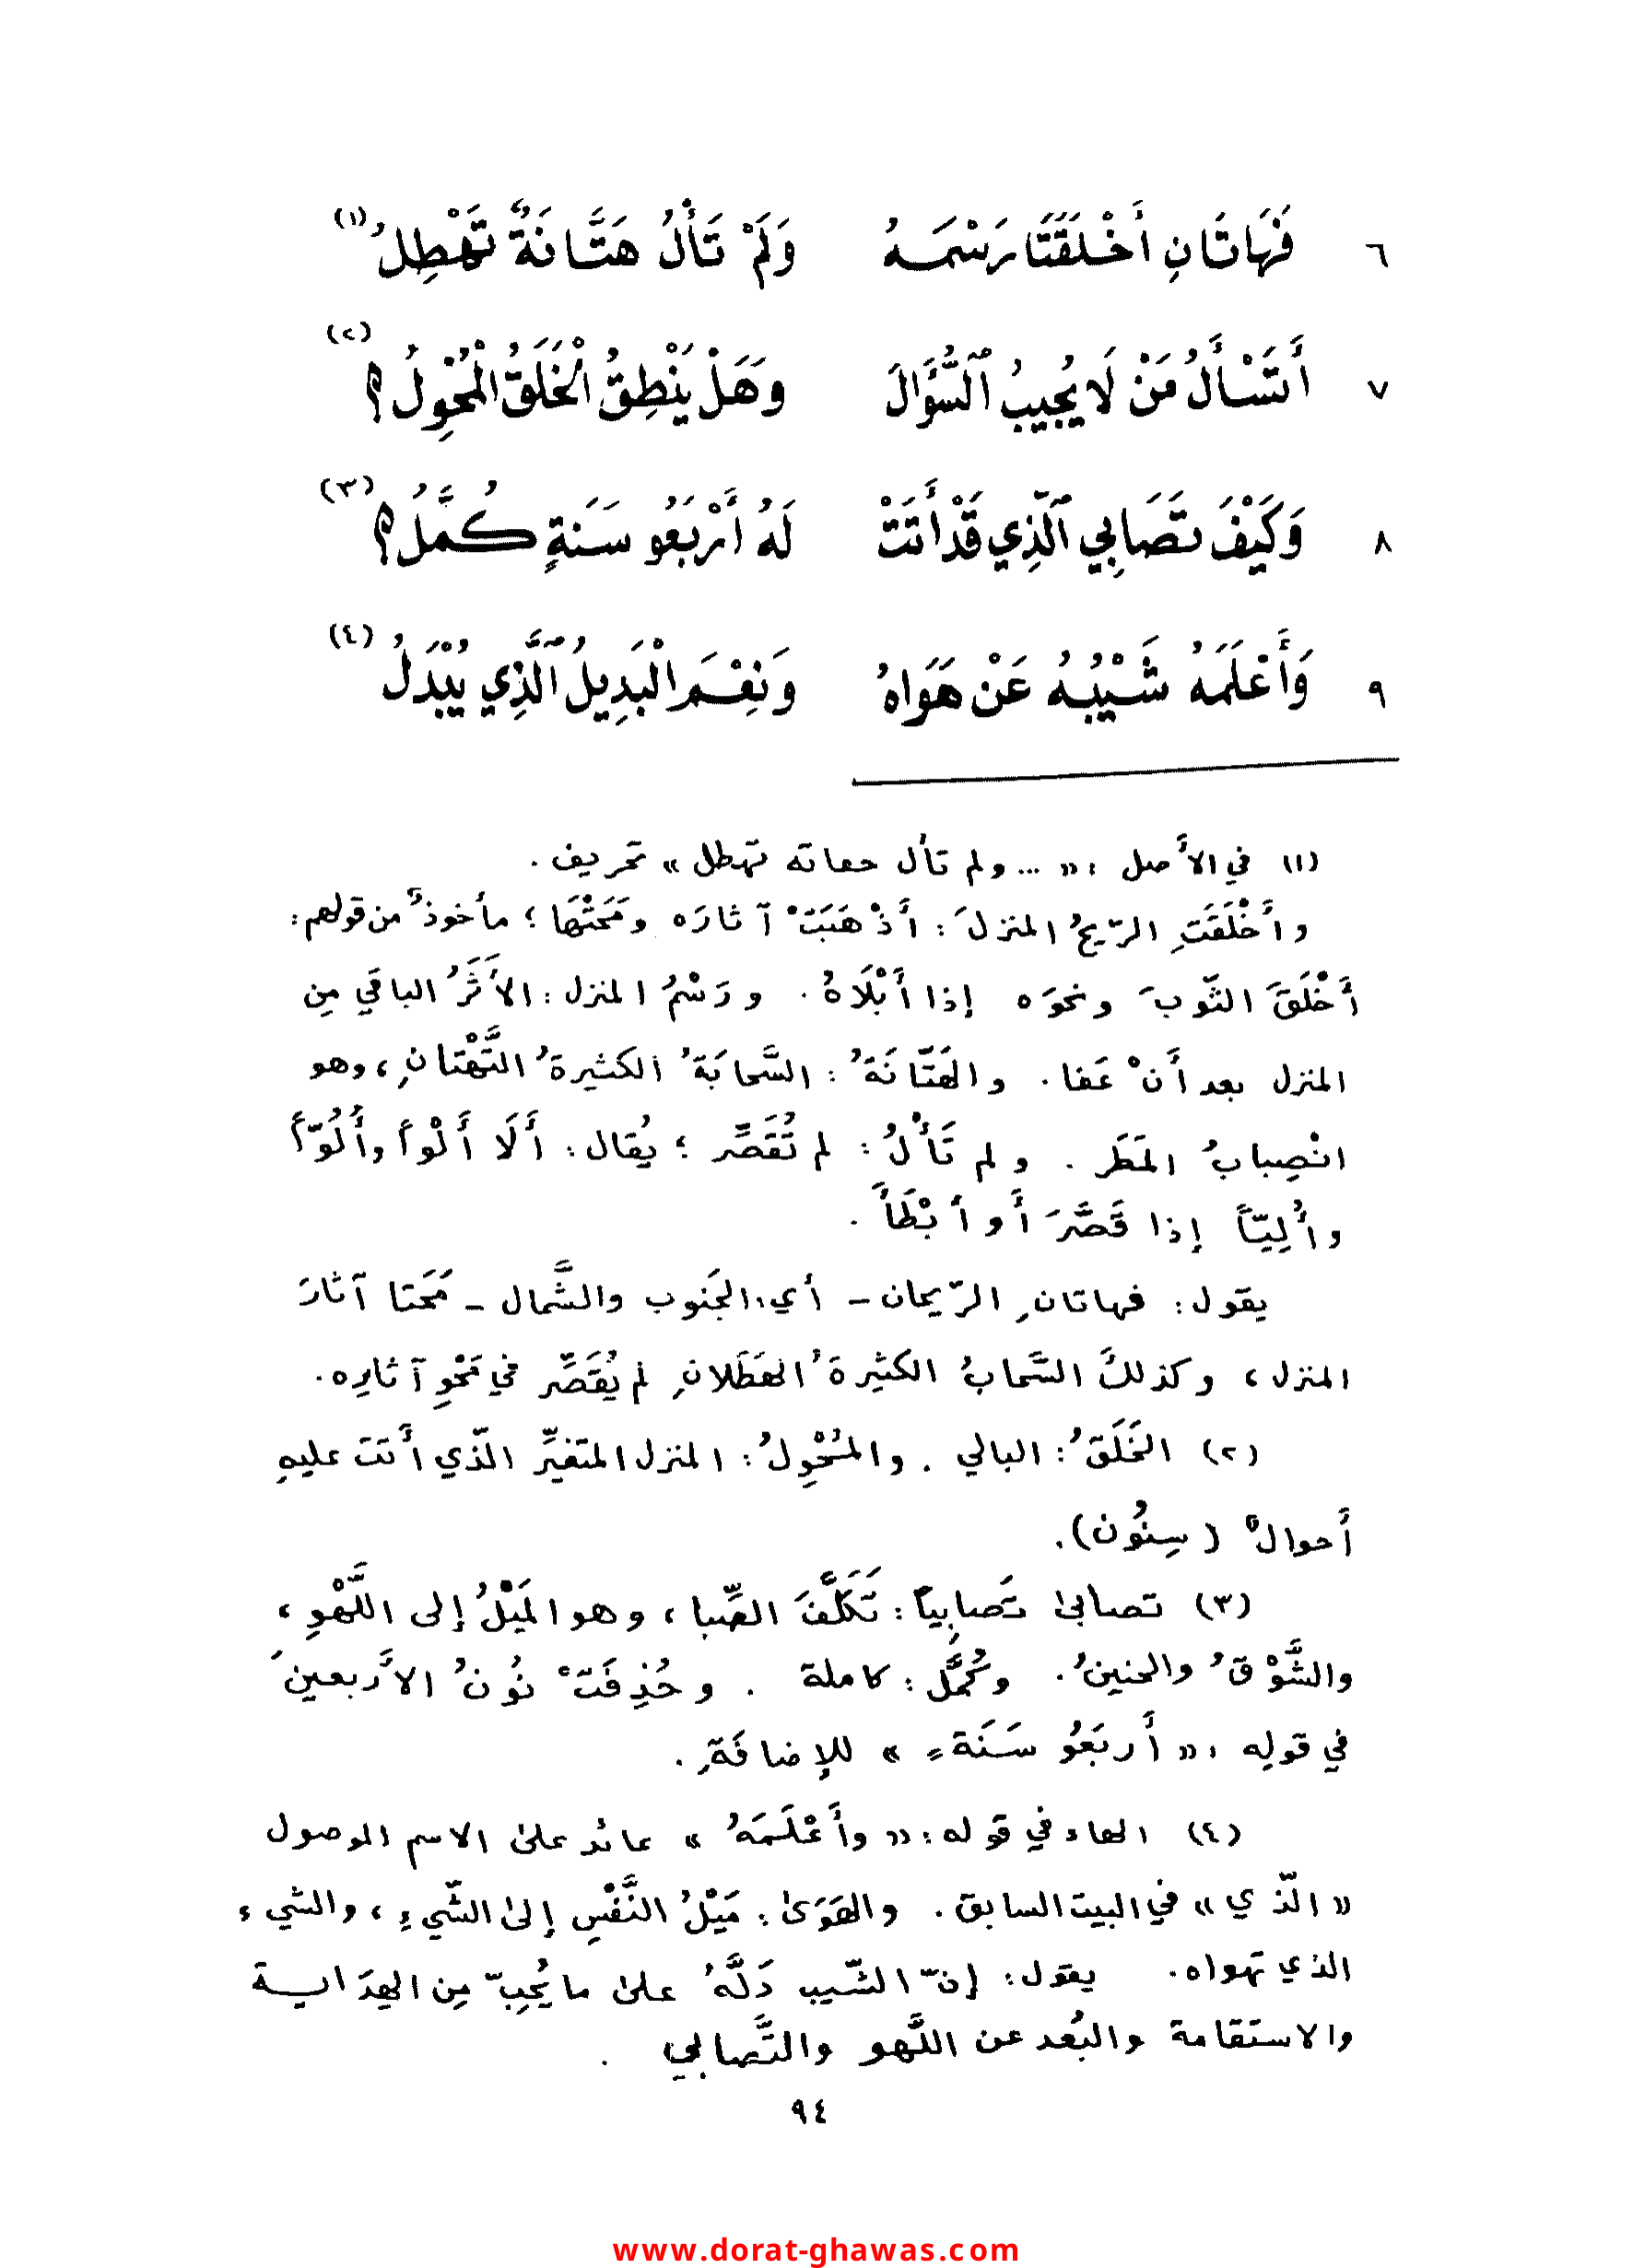 ٦ فَهَاتَانِ أَخْلَقَتَا رَسْمَهُ وَلَمْ تَأْلُ هَتَّانَةٌ تَهْطِلُ (١)
٧ أَتَسْأَلُ مَنْ لَا يُجِيبُ ٱلسُّؤَالَ وَهَلْ يَنْطِقُ الْخَلَقُ الْمُحْوِلُ؟ (٢)
٨ وَكَيْفَ تَصَابِي ٱلَّذِي قَدْ أَتَتْ لَهُ أَرْبَعُو سَنَةٍ كُمَّلُ؟ (٣)
٩ وَأَعْلَمَهُ شَيْبُهُ عَنْ هَوَاهُ وَنِعْمَ الْبَدِيلُ ٱلَّذِي يُبْدَلُ (٤)
(١) في الأصل : « ... ولم تأل حعاته تهطل » تحريف .
وأَخْلَقَتِ الرّيحُ المنزلَ : أَذْهَبَتْ آثارَه ومَحَتْهَا ؛ مأخوذٌ من قولهم :
أَخْلَقَ الثّوبَ ونحوَه إذا أَبْلَاهُ . ورَسْمُ المنزل : الأَثَرُ الباقي مِن
المنزل بعد أَنْ عَفا . والهَتّانَةُ : السَّحابَةُ الكثيرةُ التَّهْتانِ ، وهو
انْصِبابُ المَطَر . ولم تَأْلُ : لم تُقَصِّر ؛ يُقال : أَلَا أَلْواً وأُلُوّاً
وأُلِيّاً إذا قَصَّرَ أَو أَبْطَأَ .
يقول : فهاتانِ الرّيحان - أي : الجَنوب والشَّمال - مَحَتا آثارَ
المنزل ، وكذلكَ السَّحابُ الكثيرةُ الهَطَلانِ لم يُقَصِّر في مَحْوِ آثارِه .
(٢) الخَلَقُ : البالي . والمُحْوِلُ : المنزل المتغيِّر الّذي أَتَتَ عليهِ
أَحوالٌ ( سِنُون ) .
(٣) تصابىٰ تَصابِياً : تَكَلَّفَ الصِّبا ، وهو المَيْلُ إلى اللَّهْوِ ،
والشَّوْقُ والحنينُ . وكُمَّل : كاملة . وحُذِفَتْ نُونُ الأَربعينَ
في قولِه : « أَربَعُو سَنَةٍ » للإضافَةِ .
(٤) الهاء في قوله : « وأَعْلَمَهُ » عائد علىٰ الاسم الموصول
« الّذي » في البيت السابق . والهَوَىٰ : مَيْلُ النَّفْسِ إلىٰ الشّيءِ ، والشيء
الذي تهواه . يقول : إنّ الشّيب دَلَّهُ علىٰ ما يُحِبّ مِن الهِدَايـة
والاستقامة والبُعد عن اللَّهو والتَّصابي .
٩٤
www.dorat-ghawas.com